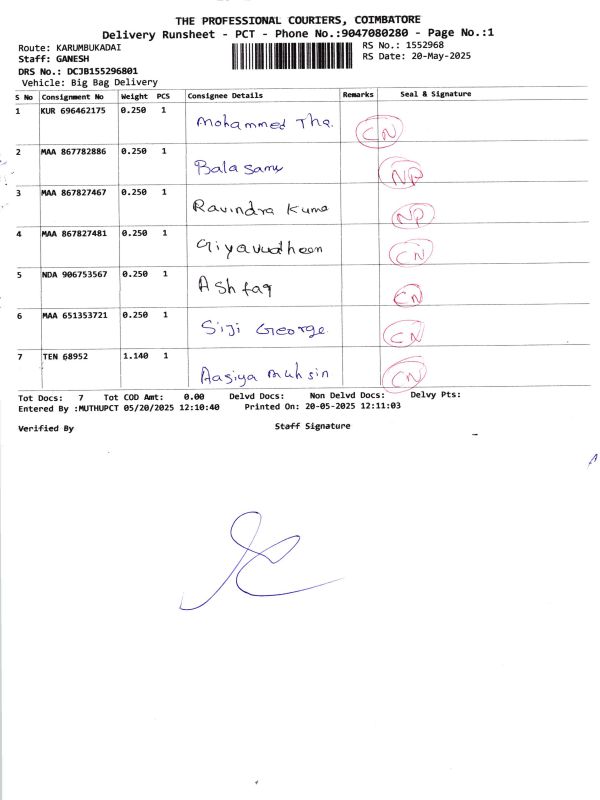 THE PROFESSIONAL COURIERS, COIMBATORE
Delivery Runsheet - PCT - Phone No.:9047080280 - Page No.:1
Route: KARUMBUKADAI RS No.: 1552968
Staff: GANESH RS Date: 20-May-2025
DRS No.: DCJB155296801
Vehicle: Big Bag Delivery
S No Consignment No Weight PCS Consignee Details Remarks Seal & Signature
1 KUR 696462175 0.250 1 Mohammed Tha. CN
2 MAA 867782886 0.250 1 Balasamy NP
3 MAA 867827467 0.250 1 Ravindra Kuma NP
4 MAA 867827481 0.250 1 Giyavudheen CN
5 NDA 906753567 0.250 1 Ashfaq CN
6 MAA 651353721 0.250 1 Siji George CN
7 TEN 68952 1.140 1 Aasiya Muhsin CN
Tot Docs: 7 Tot COD Amt: 0.00 Delvd Docs: Non Delvd Docs: Delvy Pts:
Entered By :MUTHUPCT 05/20/2025 12:10:40 Printed On: 20-05-2025 12:11:03
Verified By Staff Signature